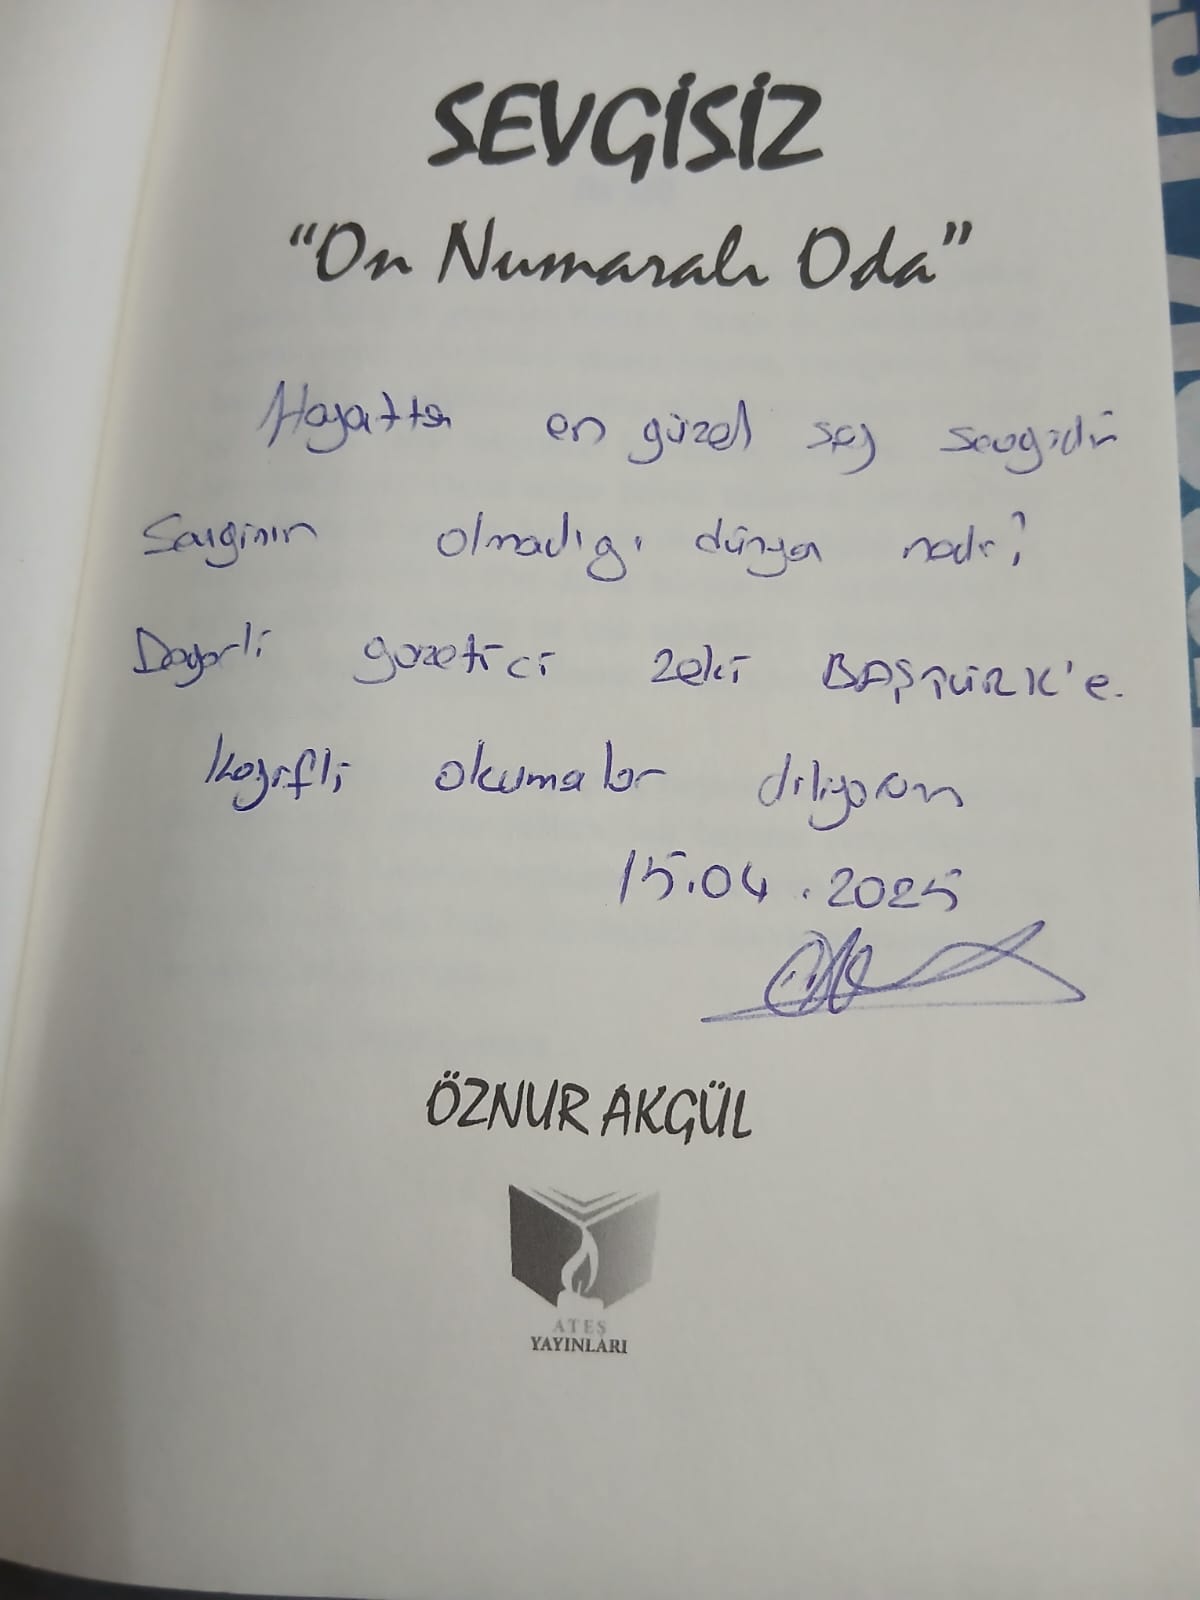 SEVGİSİZ
"On Numaralı Oda"
Hayatta en güzel şey sevgidir
Sevginin olmadığı dünya nedir?
Değerli gazetici Zeki BAŞTÜRK'e.
Keyifli okumalar diliyorum
15.04.2025
ÖZNUR AKGÜL
ATEŞ
YAYINLARI